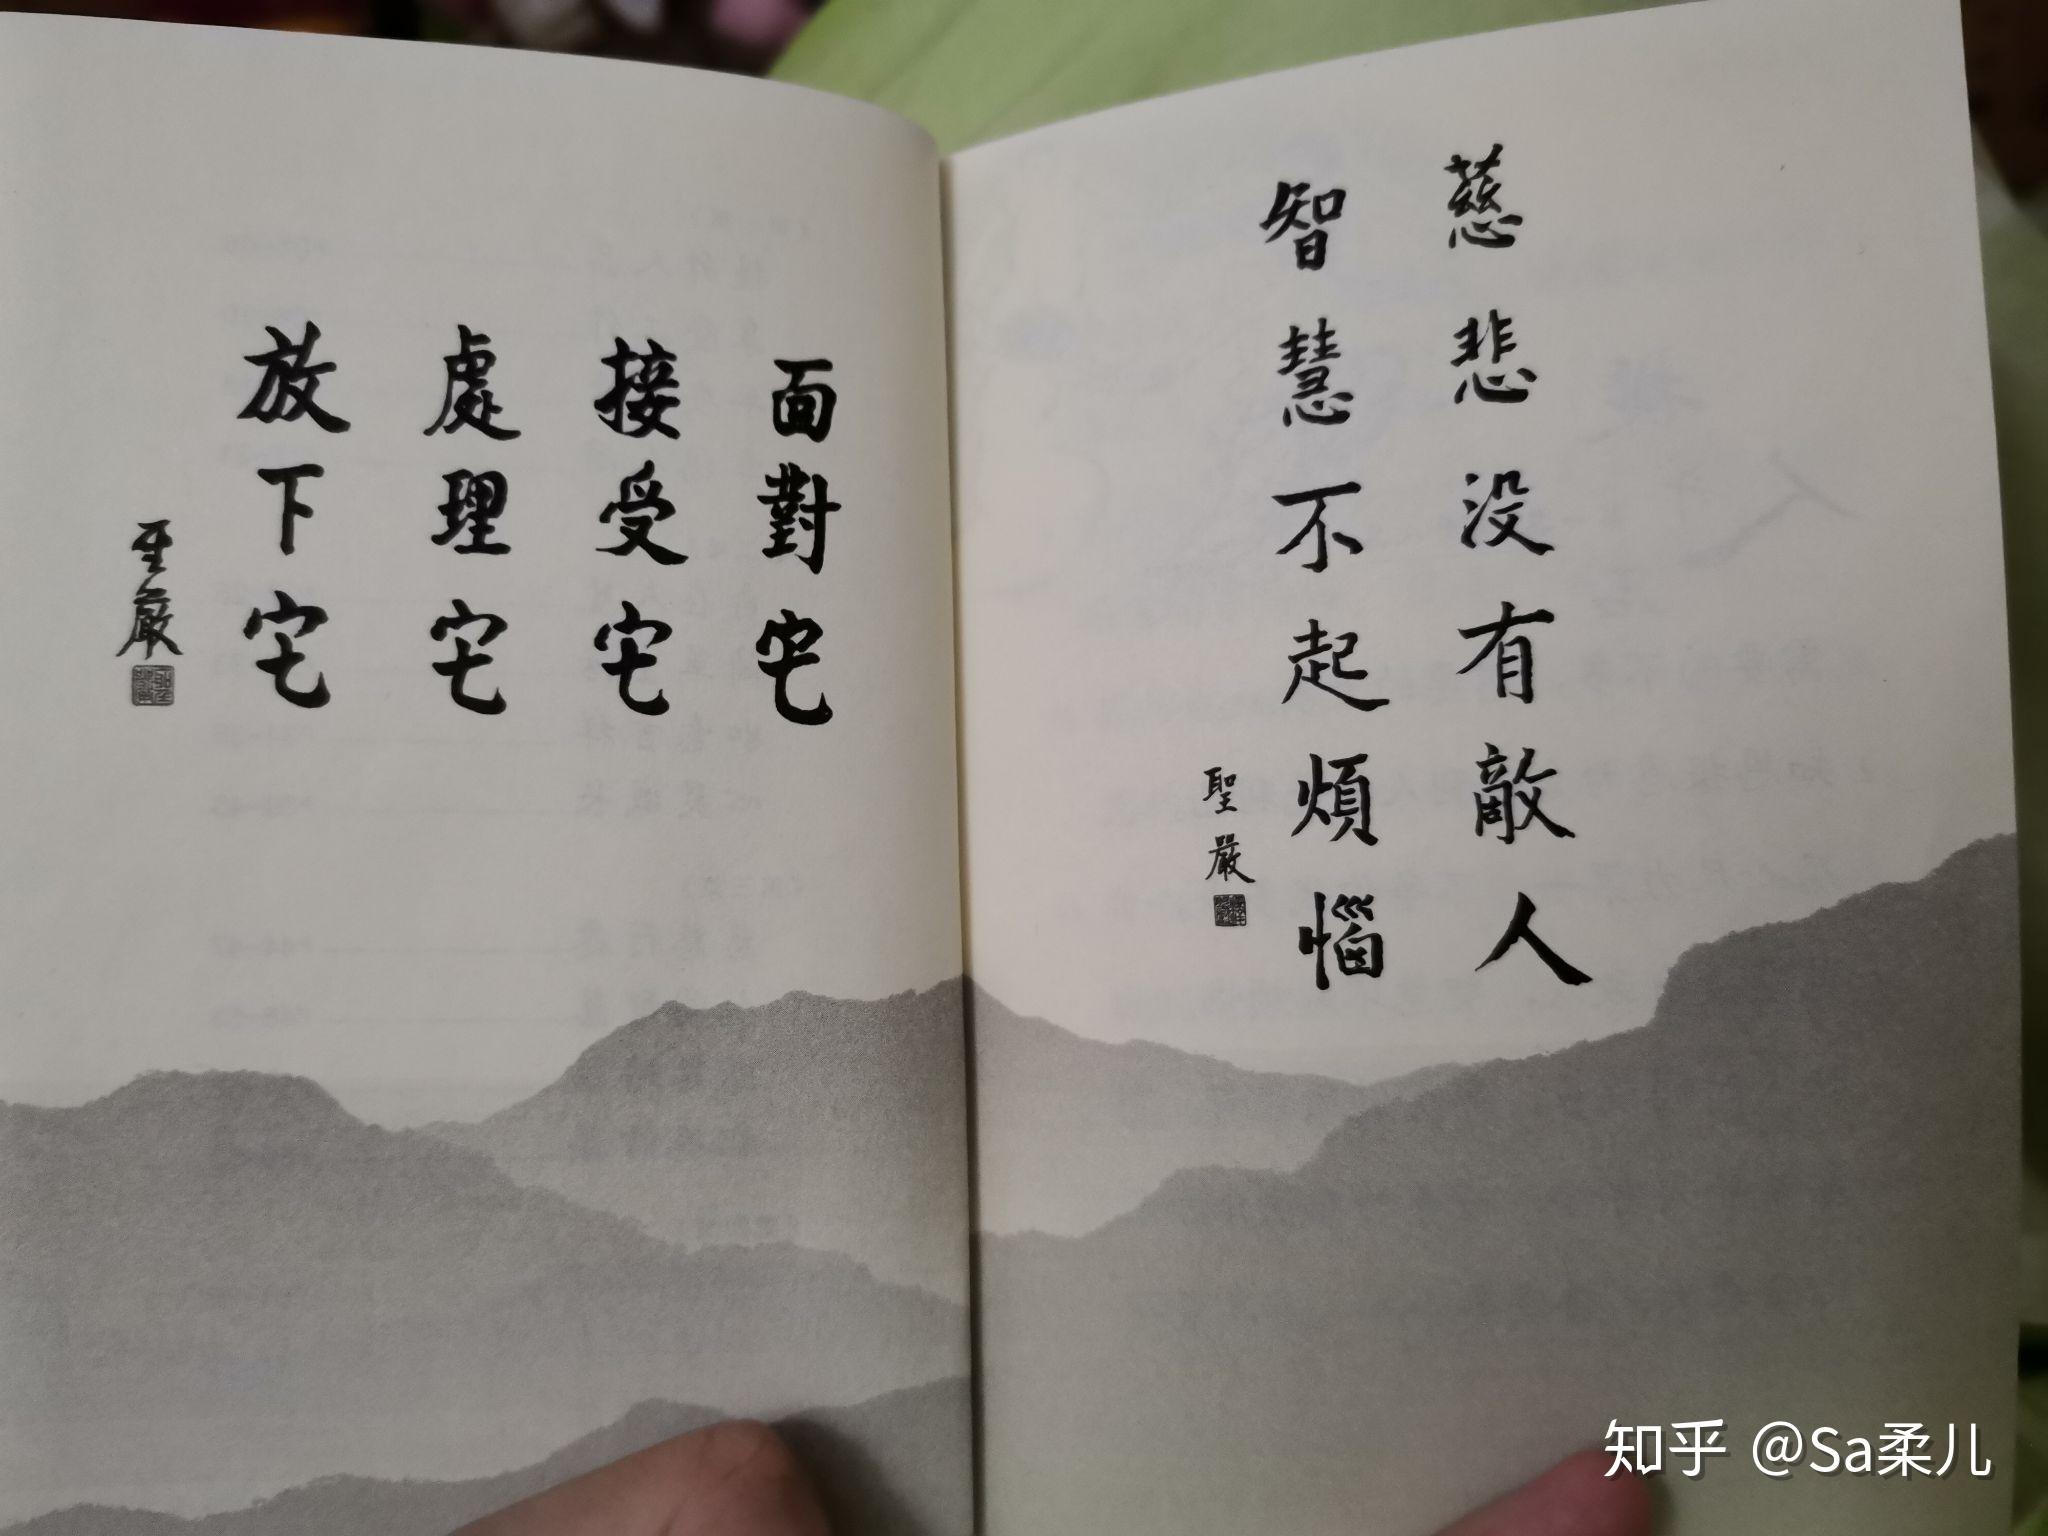 慈悲没有敵人
智慧不起煩惱
聖嚴
面對它
接受它
處理它
放下它
聖嚴
知乎 @Sa柔儿